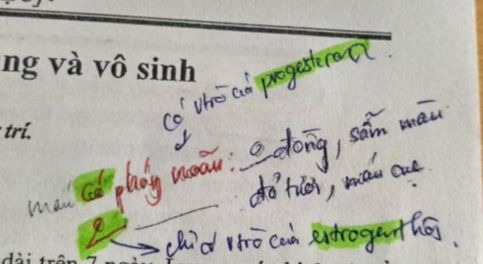 ng và vô sinh
có vtrò của progesteron.
trí.
máu có phóng noãn: đông, sẫm màu
đỏ tươi, máu cục
chỉ có vtrò của estrogen thôi.
dài trên 7 ngày